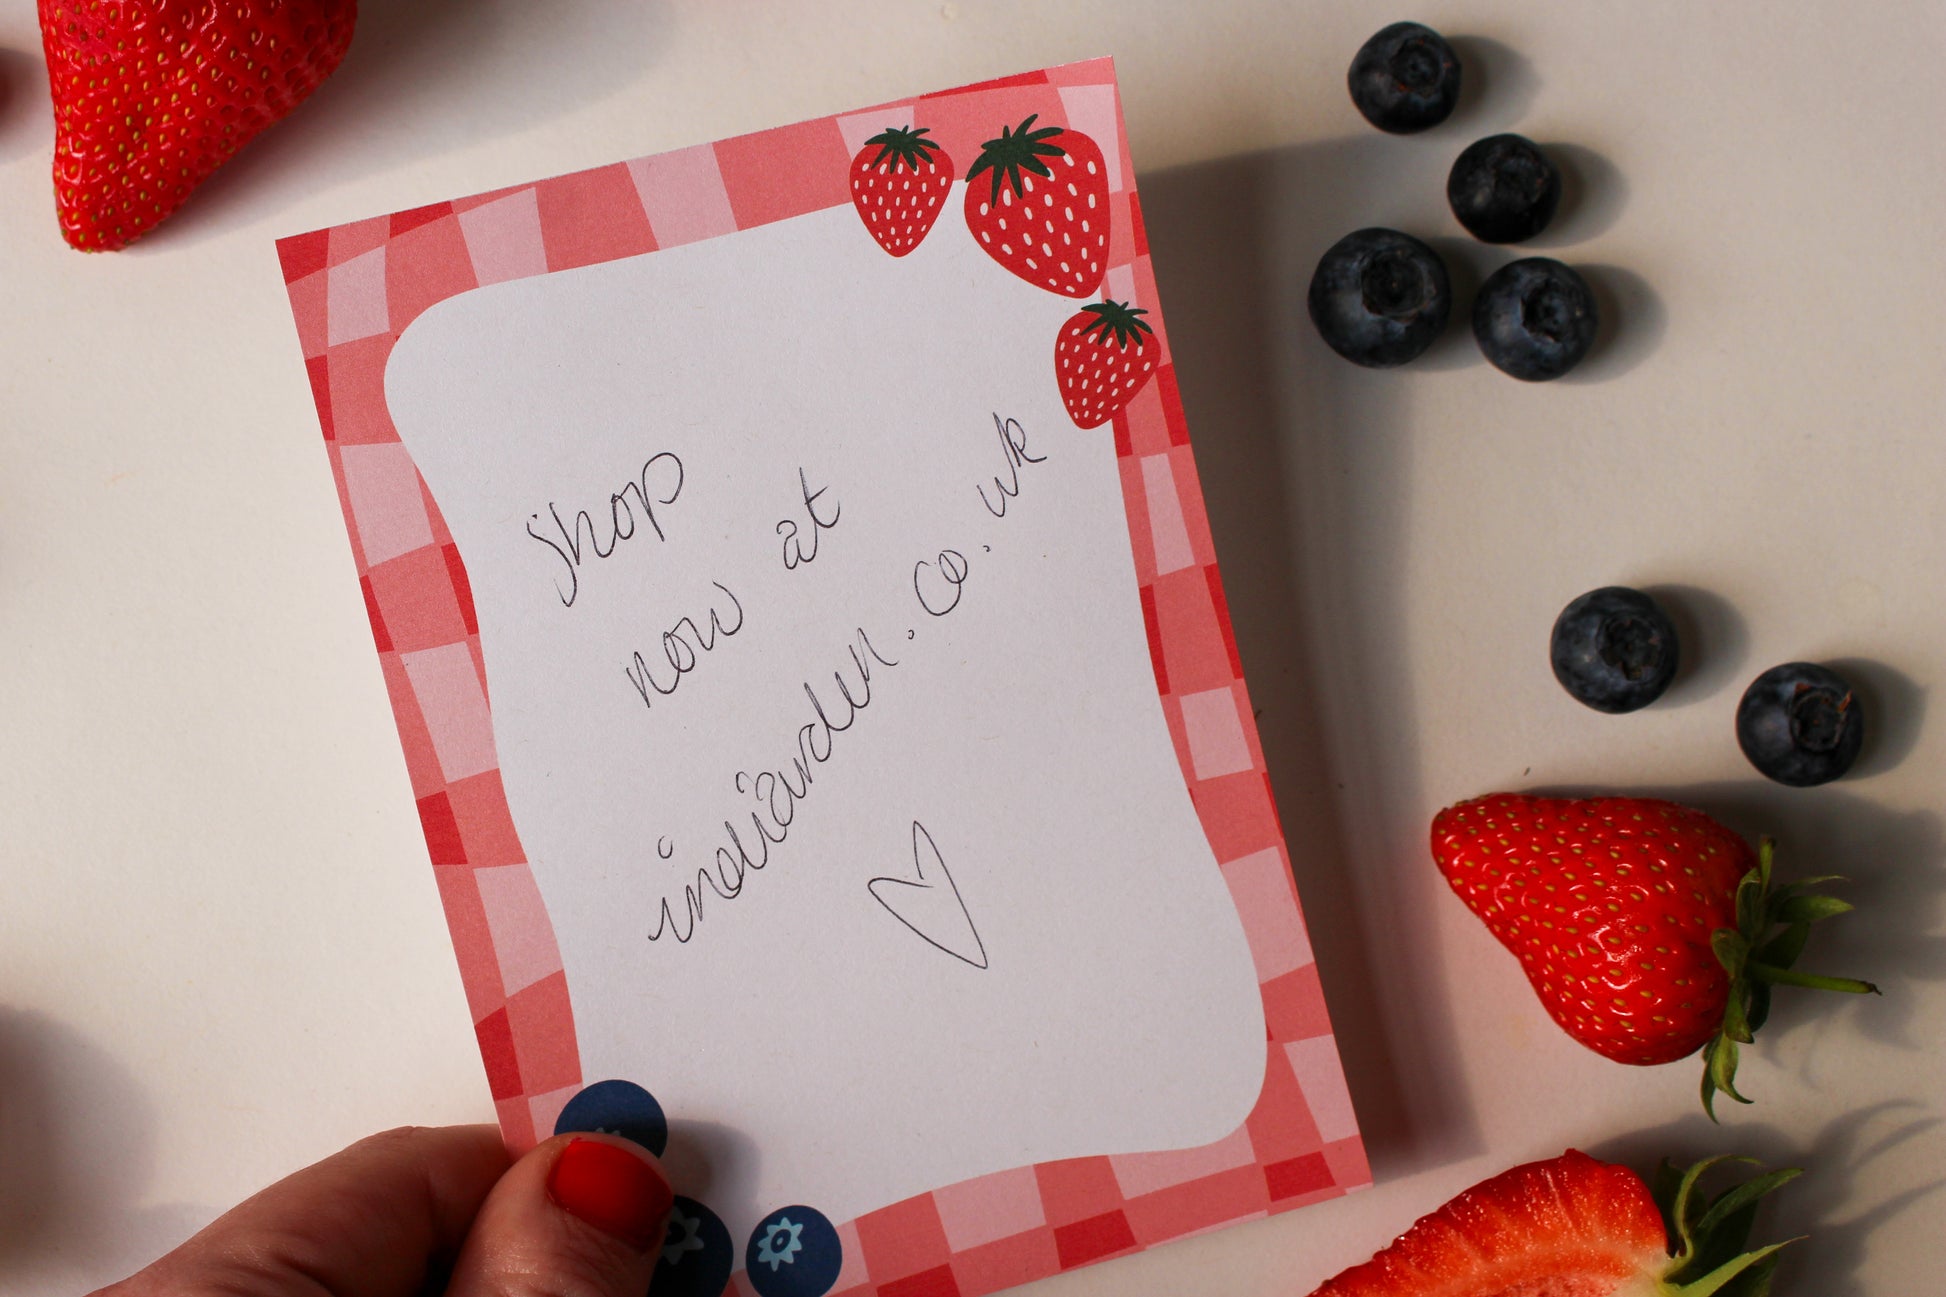 Shop
now at
indiarden.co.uk